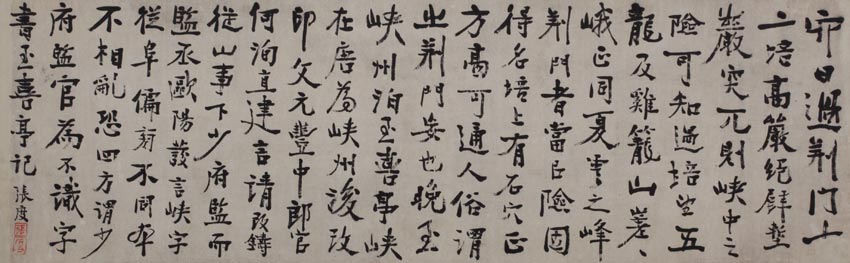 卯日過荊門十
二培高巖絕壁塹
巖突兀則峽中之
險可知過培望五
龍及雞籠山嵯〻
峨正同夏雲之峰
荊門者當以險固
得名培上有石穴正
方高可通人俗謂
之荊門妄也晚至
峽州泊至喜亭峽
在唐為峽州後改
印文元豐中郎官
何洵直建言請改鑄
從山事下少府監而
監丞歐陽發言峽字
從阜偏旁不同本
不相亂恐四方謂少
府監官為不識字
書至喜亭記 張度